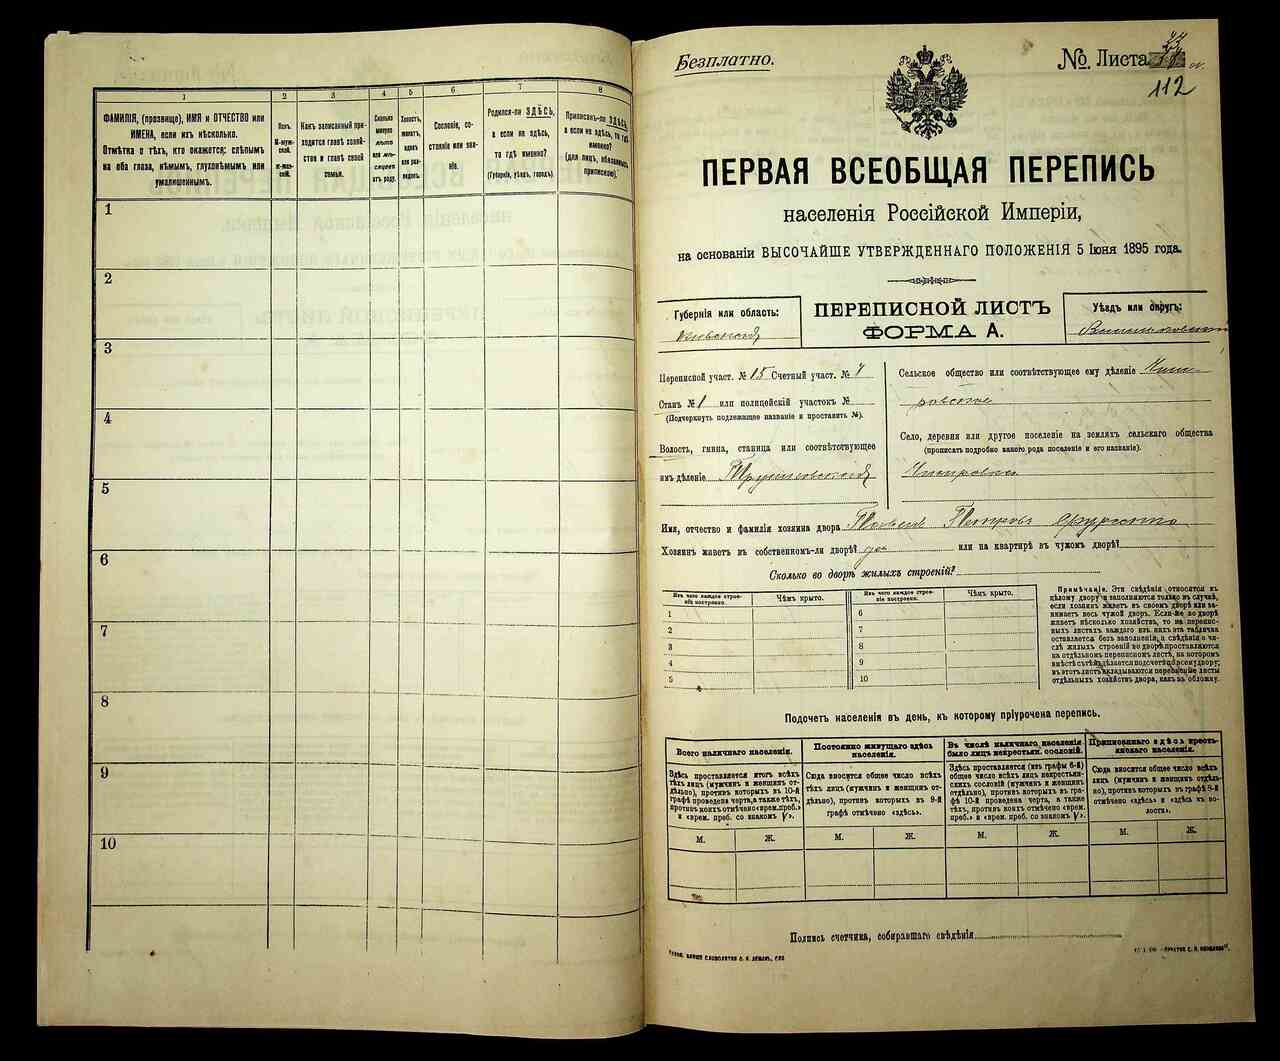 1
2
3
4
5
6
7
8
ФАМИЛІЯ, (прозвище), ИМЯ и ОТЧЕСТВО или
ИМЕНА, если ихъ нѣсколько.
Отмѣтка о тѣхъ, кто окажется: слѣпымъ
на оба глаза, нѣмымъ, глухонѣмымъ или
умалишеннымъ.
Полъ.
М-мужской.
Ж-женскій.
Какъ записанный приходится главѣ хозяйства и главѣ своей семьи.
Сколько минуло лѣтъ или мѣсяцевъ отъ роду.
Холостъ, женатъ, вдовъ или разведенъ.
Сословіе, состояніе или званіе.
Родился-ли ЗДѢСЬ,
а если не здѣсь,
то гдѣ именно?
(Губернія, уѣздъ, городъ).
Приписанъ-ли ЗДѢСЬ,
а если не здѣсь, то гдѣ
именно?
(для лицъ, обязанныхъ
припискою).
1
2
3
4
5
6
7
8
9
10
Безплатно.
№ Листа
112
ПЕРВАЯ ВСЕОБЩАЯ ПЕРЕПИСЬ
населенія Россійской Имперіи,
на основаніи ВЫСОЧАЙШЕ УТВЕРЖДЕННАГО ПОЛОЖЕНІЯ 5 Іюня 1895 года.
Губернія или область:
Кіевская
ПЕРЕПИСНОЙ ЛИСТЪ
ФОРМА А.
Уѣздъ или округъ:
Васильковскій
Переписной участ. № 15 Счетный участ. № 7
Станъ № 1 или полицейскій участокъ №
(Подчеркнуть подлежащее названіе и проставить №).
Волость, гмина, станица или соотвѣтствующее
имъ дѣленіе Трушковская
Сельское общество или соотвѣтствующее ему дѣленіе
ровское
Село, деревня или другое поселеніе на земляхъ сельскаго общества
(прописать подробно какого рода поселеніе и его названіе).
Имя, отчество и фамилія хозяина двора Петровъ
Хозяинъ живетъ въ собственномъ-ли дворѣ? да или на квартирѣ въ чужомъ дворѣ?
Сколько во дворѣ жилыхъ строеній?
Изъ чего каждое строеніе построено.
Чѣмъ крыто.
Изъ чего каждое строеніе построено.
Чѣмъ крыто.
1
2
3
4
5
6
7
8
9
10
Примѣчаніе. Эти свѣдѣнія относятся къ
цѣлому двору и заполняются только въ случаѣ,
если хозяинъ живетъ въ своемъ дворѣ или занимаетъ весь чужой дворъ. Если-же во дворѣ
живетъ нѣсколько хозяйствъ, то на переписныхъ листахъ каждаго изъ нихъ эта табличка
оставляется безъ заполненія, а свѣдѣнія о числѣ жилыхъ строеній во дворѣ проставляются
на отдѣльномъ переписномъ листѣ, на которомъ
вмѣстѣ съ тѣмъ дѣлается подсчетъ по всему двору;
въ этотъ листъ вкладываются переписные листы
отдѣльныхъ хозяйствъ двора, какъ въ обложку.
Подсчетъ населенія въ день, къ которому пріурочена перепись.
Всего наличнаго населенія.
Постоянно живущаго здѣсь
населенія.
Въ числѣ наличнаго населенія
было лицъ некрестьян. сословій.
Приписаннаго здѣсь крестьянскаго населенія.
Здѣсь проставляется итогъ всѣхъ
тѣхъ лицъ (мужчинъ и женщинъ отдѣльно), противъ которыхъ въ 10-й
графѣ проведена черта, а также тѣхъ,
противъ коихъ отмѣчено «врем. преб.»
и «врем. преб. со знакомъ V».
Сюда вносится общее число всѣхъ
тѣхъ лицъ (мужчинъ и женщинъ отдѣльно), противъ которыхъ въ 9-й
графѣ отмѣчено «здѣсь».
Здѣсь проставляется (изъ графы 6-й)
общее число всѣхъ лицъ некрестьянскихъ сословій (мужчинъ и женщинъ
отдѣльно), противъ которыхъ въ графѣ 10-й проведена черта, а также
тѣхъ, противъ коихъ отмѣчено «врем.
преб.» и «врем. преб. со знакомъ V».
Сюда вносится общее число всѣхъ
тѣхъ лицъ (мужчинъ и женщинъ отдѣльно), противъ которыхъ въ графѣ 8-й
отмѣчено «здѣсь» и «здѣсь въ волости».
М.
Ж.
М.
Ж.
М.
Ж.
М.
Ж.
Подпись счетчика, собиравшаго свѣдѣнія